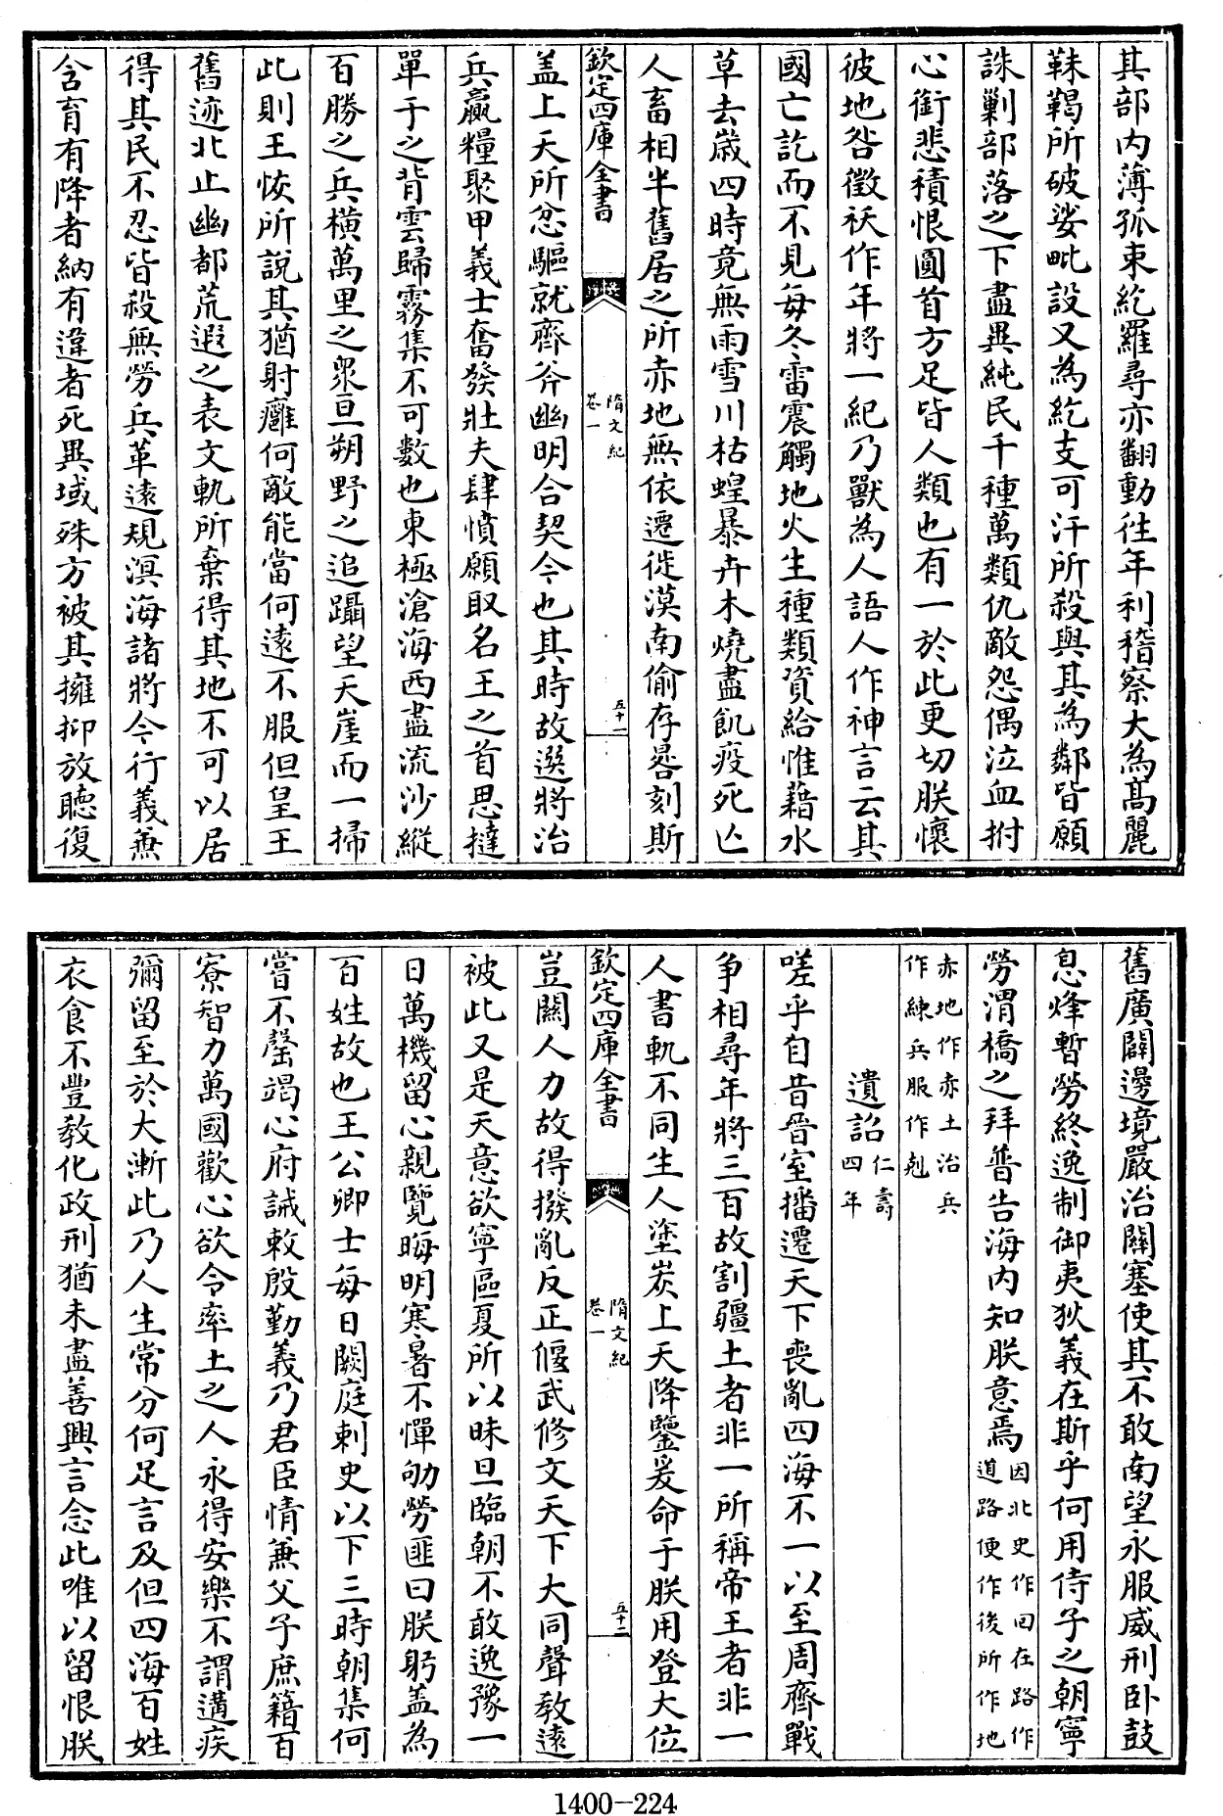 其部内薄孤束紇羅尋亦翻動往年利稽察大為髙麗
靺鞨所破娑毗設又為紇支可汗所殺與其為鄰皆願
誅剿部落之下盡異純民千種萬類仇敵怨偶泣血拊
心銜悲積恨圓首方足皆人類也有一於此更切朕懷
彼地咎徵祅作年將一紀乃獸為人語人作神言云其
國亡訖而不見每冬雷震觸地火生種類資給惟藉水
草去嵗四時竟無雨雪川枯蝗暴卉木燒盡飢疫死亡
人畜相半舊居之所赤地無依遷徙漠南偷存晷刻斯
欽定四庫全書
隋文紀
卷一
五十一
盖上天所忿驅就齊斧幽明合契今也其時故選將治
兵贏糧聚甲義士奮發壯夫肆憤願取名王之首思撻
單于之背雲歸霧集不可數也東極滄海西盡流沙縱
百勝之兵橫萬里之衆亘朔野之追躡望天崖而一掃
此則王恢所說其猶射癰何敵能當何逺不服但皇王
舊迹北止幽都荒遐之表文軌所棄得其地不可以居
得其民不忍皆殺無勞兵革逺規溟海諸將今行義兼
含育有降者納有違者死異域殊方被其擁抑放聴復
舊廣闢邊境嚴治關塞使其不敢南望永服威刑卧鼓
息烽暫勞終逸制御夷狄義在斯乎何用侍子之朝寧
勞渭橋之拜普告海内知朕意焉
因北史作回在路作
道路便作後所作地
赤地作赤土治兵
作練兵服作剋
遺詔
仁壽
四年
嗟乎自昔晉室播遷天下喪亂四海不一以至周齊戰
争相尋年將三百故割疆土者非一所稱帝王者非一
人書軌不同生人塗炭上天降鑒爰命于朕用登大位
欽定四庫全書
隋文紀
卷一
五十二
豈闗人力故得撥亂反正偃武修文天下大同聲教逺
被此又是天意欲寧區夏所以昧旦臨朝不敢逸豫一
日萬機留心親覽晦明寒暑不憚劬勞匪曰朕躬盖為
百姓故也王公卿士每日闕庭刺史以下三時朝集何
嘗不罄竭心府誡敕殷勤義乃君臣情兼父子庶籍百
寮智力萬國歡心欲令率土之人永得安樂不謂遘疾
彌留至於大漸此乃人生常分何足言及但四海百姓
衣食不豐教化政刑猶未盡善興言念此唯以留恨朕
1400-224